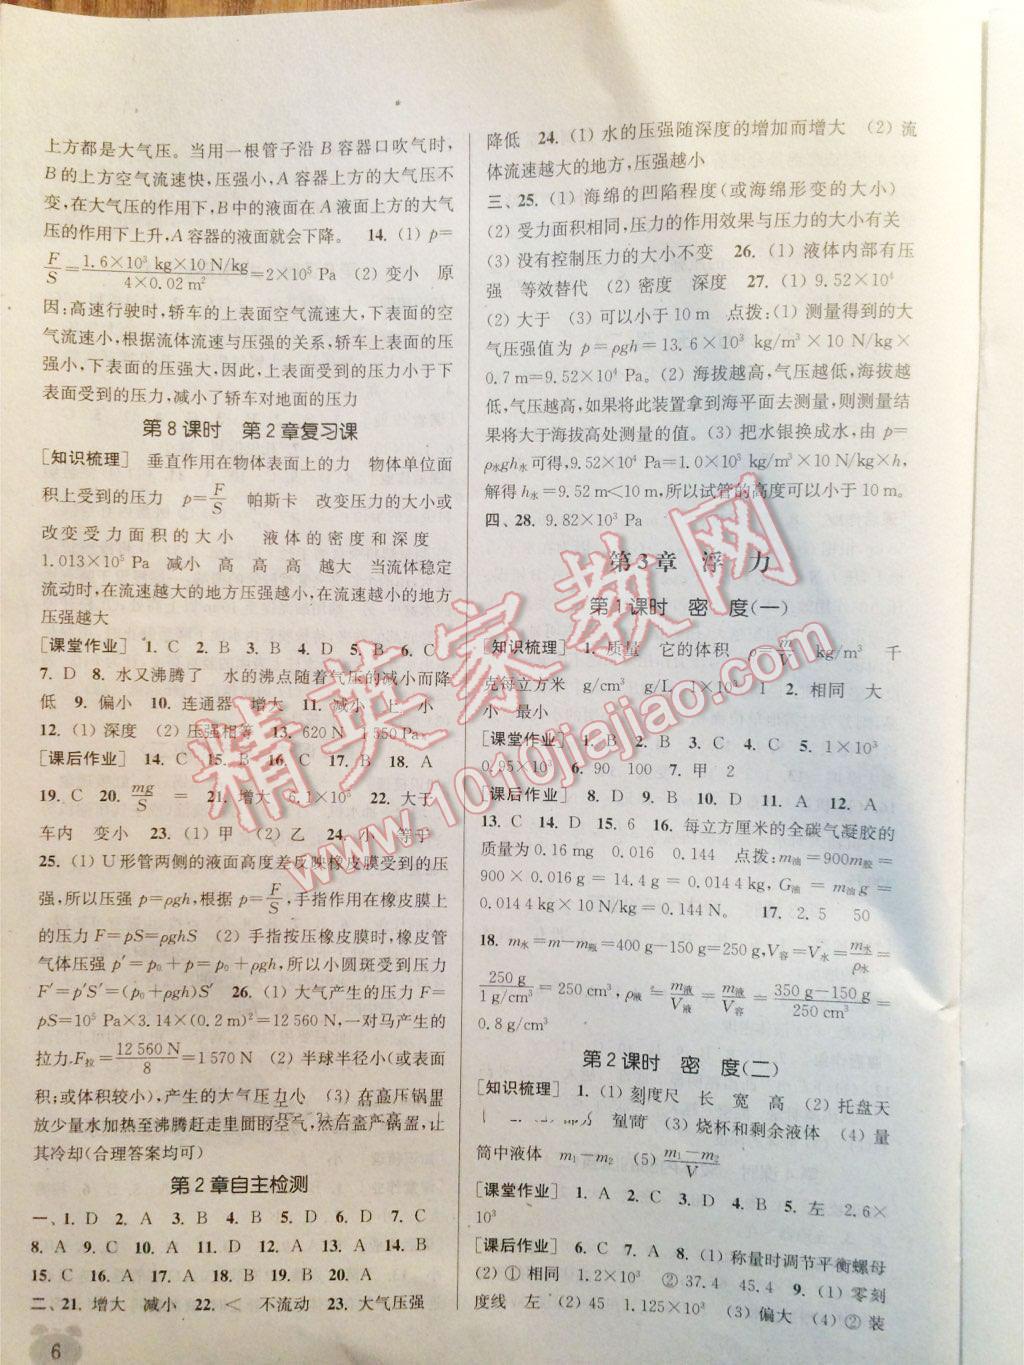 上方都是大气压。当用一根管子沿 B 容器口吹气时,
B 的上方空气流速快,压强小,A 容器上方的大气压不
变,在大气压的作用下,B 中的液面在 A 液面上方的大气
压的作用下上升,A 容器的液面就会下降。 14. (1) p=
F/S=1.6×10³ kg×10 N/kg/4×0.02 m²=2×10⁵ Pa (2) 变小 原
因:高速行驶时,轿车的上表面空气流速大,下表面的空
气流速小,根据流体流速与压强的关系,轿车上表面的压
强小,下表面的压强大,因此,上表面受到的压力小于下
表面受到的压力,减小了轿车对地面的压力
第 8 课时 第 2 章复习课
[知识梳理] 垂直作用在物体表面上的力 物体单位面
积上受到的压力 p=F/S 帕斯卡 改变压力的大小或
改变受力面积的大小 液体的密度和深度
1.013×10⁵ Pa 减小 高 高 高 越大 当流体稳定
流动时,在流速越大的地方压强越小,在流速越小的地方
压强越大
[课堂作业] 1. C 2. B 3. B 4. D 5. B 6. C
7. D 8. 水又沸腾了 水的沸点随着气压的减小而降
低 9. 偏小 10. 连通器 增大 11. 减小 上 小
12. (1) 深度 (2) 压强相等 13. 620 N 1 550 Pa
[课后作业] 14. C 15. B 16. C 17. B 18. A
19. C 20. mg/S = 21. 增大 6.1×10⁵ 22. 大于
车内 变小 23. (1) 甲 (2) 乙 24. 小 等于
25. (1) U 形管两侧的液面高度差反映橡皮膜受到的压
强,所以压强 p=ρgh,根据 p=F/S,手指作用在橡皮膜上
的压力 F=pS=ρghS (2) 手指按压橡皮膜时,橡皮管
气体压强 p′=p₀+p=p₀+ρgh,所以小圆斑受到压力
F′=p′S′=(p₀+ρgh)S′ 26. (1) 大气产生的压力 F=
pS=10⁵ Pa×3.14×(0.2 m)²=12 560 N,一对马产生的
拉力 F拉=12 560 N/8=1 570 N (2) 半球半径小(或表面
积;或体积较小),产生的大气压力小 (3) 在高压锅里
放少量水加热至沸腾赶走里面的空气,然后盖严锅盖,让
其冷却(合理答案均可)
第 2 章自主检测
一、1. D 2. A 3. B 4. B 5. D 6. D 7. C
8. A 9. C 10. A 11. D 12. A 13. A 14. B
15. C 16. A 17. A 18. B 19. B 20. A
二、21. 增大 减小 22. < 不流动 23. 大气压强
降低 24. (1) 水的压强随深度的增加而增大 (2) 流
体流速越大的地方,压强越小
三、25. (1) 海绵的凹陷程度(或海绵形变的大小)
(2) 受力面积相同,压力的作用效果与压力的大小有关
(3) 没有控制压力的大小不变 26. (1) 液体内部有压
强 等效替代 (2) 密度 深度 27. (1) 9.52×10⁴
(2) 大于 (3) 可以小于 10 m 点拨:(1) 测量得到的大
气压强值为 p=ρgh=13.6×10³ kg/m³×10 N/kg×
0.7 m=9.52×10⁴ Pa。(2) 海拔越高,气压越低,海拔越
低,气压越高,如果将此装置拿到海平面去测量,则测量结
果将大于海拔高处测量的值。(3) 把水银换成水,由 p=
ρ水gh水可得,9.52×10⁴ Pa=1.0×10³ kg/m³×10 N/kg×h,
解得 h水=9.52 m<10 m,所以试管的高度可以小于 10 m。
四、28. 9.82×10³ Pa
第 3 章 浮 力
第 1 课时 密 度(一)
[知识梳理] 1. 质量 它的体积 ρ=m/V kg/m³ 千
克每立方米 g/cm³ g/L 1×10³ 1 2. 相同 大
小 最小
[课堂作业] 1. B 2. B 3. C 4. C 5. 1×10³
0.95×10³ 6. 90 100 7. 甲 2
[课后作业] 8. D 9. B 10. D 11. A 12. A
13. C 14. D 15. 6 16. 每立方厘米的全碳气凝胶的
质量为 0.16 mg 0.016 0.144 点拨:m油=900m胶=
900×0.016 g=14.4 g=0.014 4 kg,G油=m油g=
0.014 4 kg×10 N/kg=0.144 N。 17. 2.5 50
18. m水=m−m瓶=400 g−150 g=250 g,V容=V水=m水/ρ水=
250 g/1 g/cm³=250 cm³,ρ液=m液/V液=m液/V容=350 g−150 g/250 cm³=
0.8 g/cm³
第 2 课时 密 度(二)
[知识梳理] 1. (1) 刻度尺 长 宽 高 (2) 托盘天
量筒 (3) 烧杯和剩余液体 (4) 量
筒中液体 m₁−m₂ (5) m₁−m₂/V
[课堂作业] 1. A 2. C 3. D 4. B 5. 左 2.6×
10³
[课后作业] 6. C 7. A 8. (1) 称量时调节平衡螺母
(2) ① 相同 1.2×10³ ② 37.4 45.4 9. (1) 零刻
度线 左 (2) 45 1.125×10³ (3) 偏大 (4) ② 装
6
精英家教网
www.1010jiajiao.com